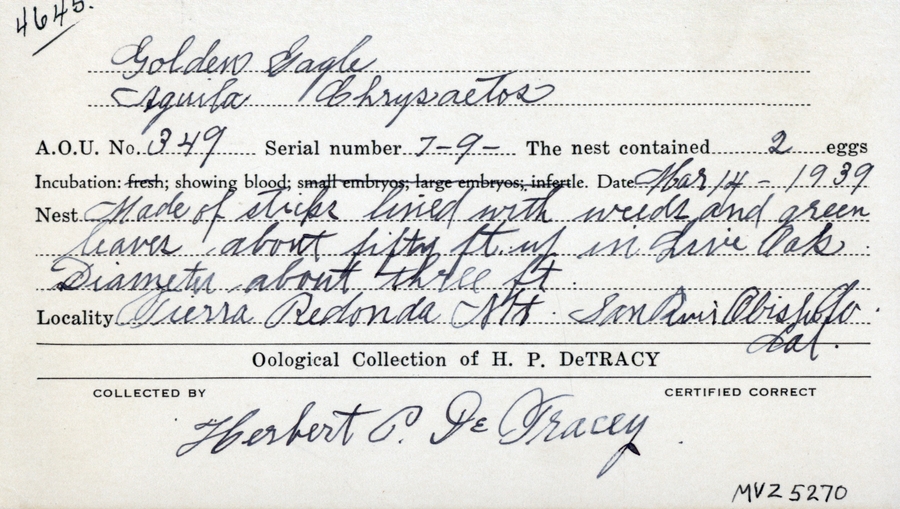 4645.
Golden Eagle
Aquila Chrysaetos
A.O.U. No. 349 Serial number 7-9- The nest contained 2 eggs
Incubation: fresh; showing blood; small embryos; large embryos; infertle. Date Mar 14 - 1939
Nest Made of sticks lined with weeds and green
leaves about fifty ft. up in Live Oak.
Diameter about three ft.
Locality Tierra Redonda Mt. San Luis Obispo
Cal.
Oological Collection of H. P. DeTRACY
COLLECTED BY CERTIFIED CORRECT
Herbert P. De Tracey.
MVZ 5270